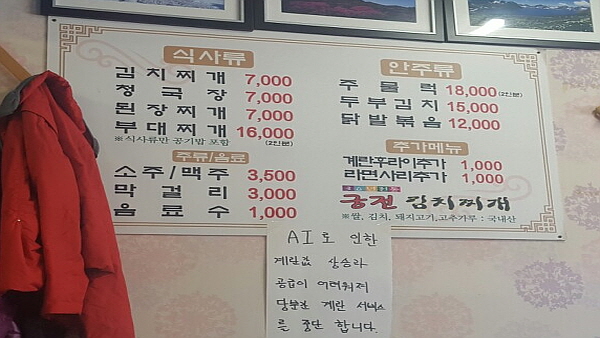 식사류
김치찌개 7,000
청국장 7,000
된장찌개 7,000
부대찌개 16,000
(2인분)
※식사류만 공기밥 포함
주류/음료
소주/맥주 3,500
막걸리 3,000
음료수 1,000
안주류
주물럭 18,000(2인분)
두부김치 15,000
닭발볶음 12,000
추가메뉴
계란후라이추가 1,000
라면사리추가 1,000
궁전 김치찌개
※쌀, 김치, 돼지고기,고추가루 : 국내산
AI로 인한
계란값 상승과
공급이 어려워져
당분간 계란 서비스
를 중단 합니다.